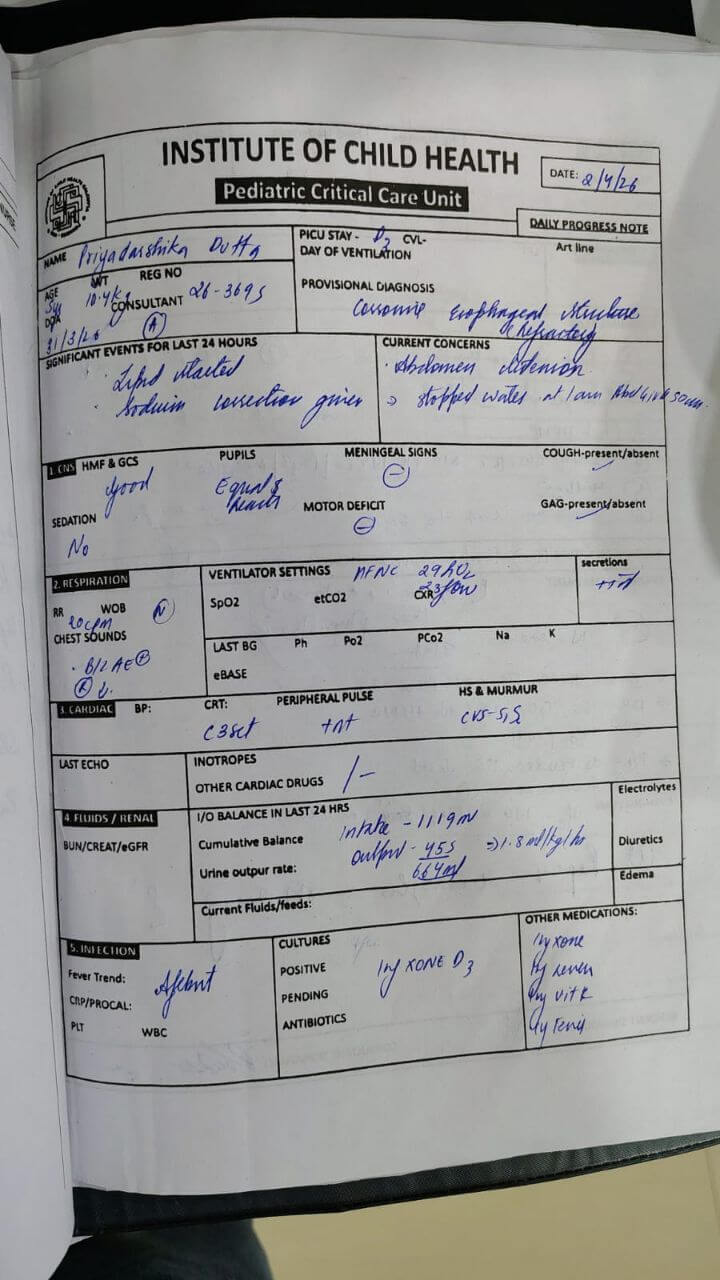 INSTITUTE OF CHILD HEALTH
Pediatric Critical Care Unit
DATE: 2/4/26
DAILY PROGRESS NOTE
NAME Priyadarshika Dutta
PICU STAY - D3 CVL-
Art line
DAY OF VENTILATION
AGE WT REG NO
5yr 10.4kg 26-3695
DOA CONSULTANT
31/3/26 (A)
PROVISIONAL DIAGNOSIS
Corrosive Esophageal stricture
Refractory
SIGNIFICANT EVENTS FOR LAST 24 HOURS
Sodium correction given
CURRENT CONCERNS
Abdomen
stopped water at 1 am
1. CNS HMF & GCS PUPILS MENINGEAL SIGNS COUGH-present/absent
Good Equal & (-)
SEDATION MOTOR DEFICIT GAG-present/absent
No (-)
2. RESPIRATION VENTILATOR SETTINGS HFNC secretions
RR WOB (N) SpO2 etCO2 CXR
CHEST SOUNDS
LAST BG Ph Po2 PCo2 Na K
B/L AE (+)
eBASE
3. CARDIAC BP: CRT: PERIPHERAL PULSE HS & MURMUR
CVS-S1S2
LAST ECHO INOTROPES
OTHER CARDIAC DRUGS
4. FLUIDS / RENAL I/O BALANCE IN LAST 24 HRS Electrolytes
BUN/CREAT/eGFR Cumulative Balance Intake - 1119 ml
Output - 455 => 1.8 ml/kg/hr Diuretics
Urine outpur rate: 664 ml
Edema
Current Fluids/feeds:
5. INFECTION CULTURES OTHER MEDICATIONS:
Fever Trend: POSITIVE Inj XONE D3 Inj xone
CRP/PROCAL: PENDING Inj vit K
PLT WBC ANTIBIOTICS